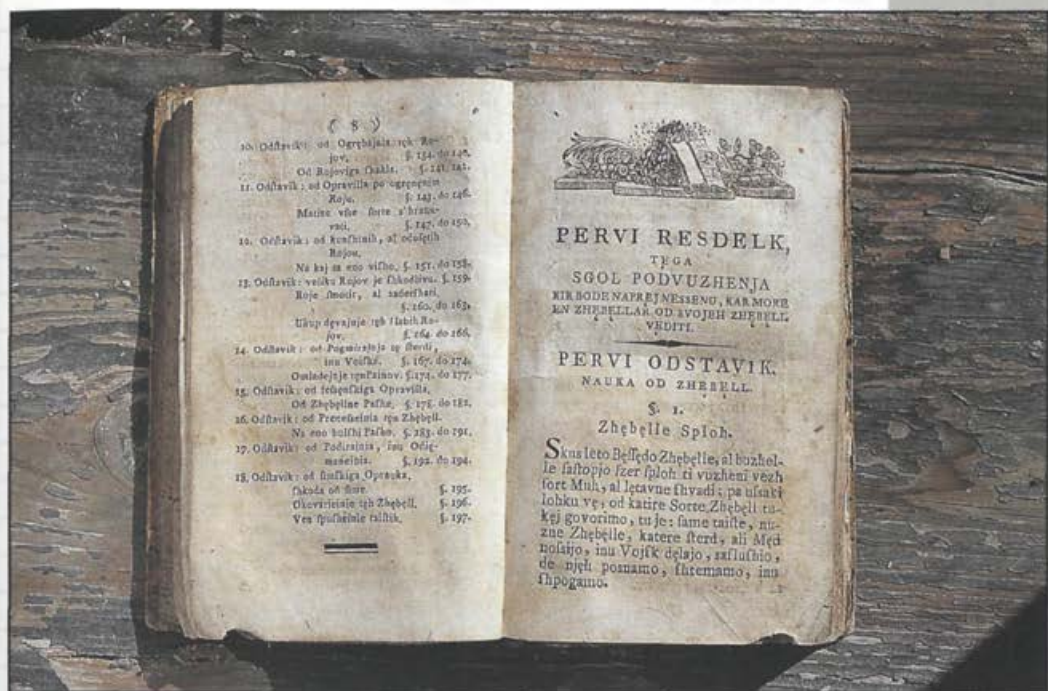 ( 8 )
10. Odſtavik: od Ogrębajnia tęh Ro-
jov, §. 134. do 140.
Od Rojoviga §. 141. 142.
11. Odſtavik: od Opravilla po ogręnęnim
Roju. §. 143. do 146.
Matize vſſe ſorte s'hranu-
vati, §. 147. do 150.
12. Odſtavik: od kunſhtnih, al oduſętih
Rojou.
Na kaj sa eno viſho, §. 151. do 158.
13. Odſtavik: veliku Rojov je ſhkodlivu. §. 159.
Roje ſmotit, al saderſhati,
§. 160. do 163.
Ukup dęvajnje tęh ſlabih Ro-
jov. §. 164. do 166.
14. Odſtavik: od ſterdi,
inu Voiſka. §. 167. do 174.
§. 174. do 177.
15. Odſtavik: od Opravilla,
Od Zhębęlne Paſhe, §. 178. do 182.
16. Odſtavik: od Preneſſeinia tęh Zhębęll.
Na eno bolſhi Paſho, §. 183. do 191.
17. Odſtavik: od Podirainia, inu Odję-
maneinia. §. 192. do 194.
18. Odſtavik: od ſimſkiga Opravka,
ſhkoda od §. 195.
tęh Zhębęll. §. 196.
Ven ſpuſheinie taiſtih, §. 197.
PERVI RESDELK,
TĘGA
SGOL PODVUZHENJA
KIR BODE NAPREJ NESSENU, KAR MORE
EN ZHĘBĘLLAR OD SVOJEH ZHĘBĘLL
VĘDITI.
PERVI ODSTAVIK.
NAUKA OD ZHĘBĘLL.
§. 1.
Zhębęlle Sploh.
Skus leto Bęſſędo Zhębęlle, al buzhel-
le ſaſtopjo ſzer ſploh ti vuzheni vezh
ſort Muh, al lętavne ſhvadi; pa uſaki
lohku vę, od katire Sorte Zhębęll ta-
kęj govorimo, tu je: ſame taiſte, nu-
zne Zhębęlle, katere ſterd, ali Męd
noſsijo, inu Vojſk dęlajo, saſluſhio,
de njęh posnamo, ſhtemamo, inu
ſhpogamo.